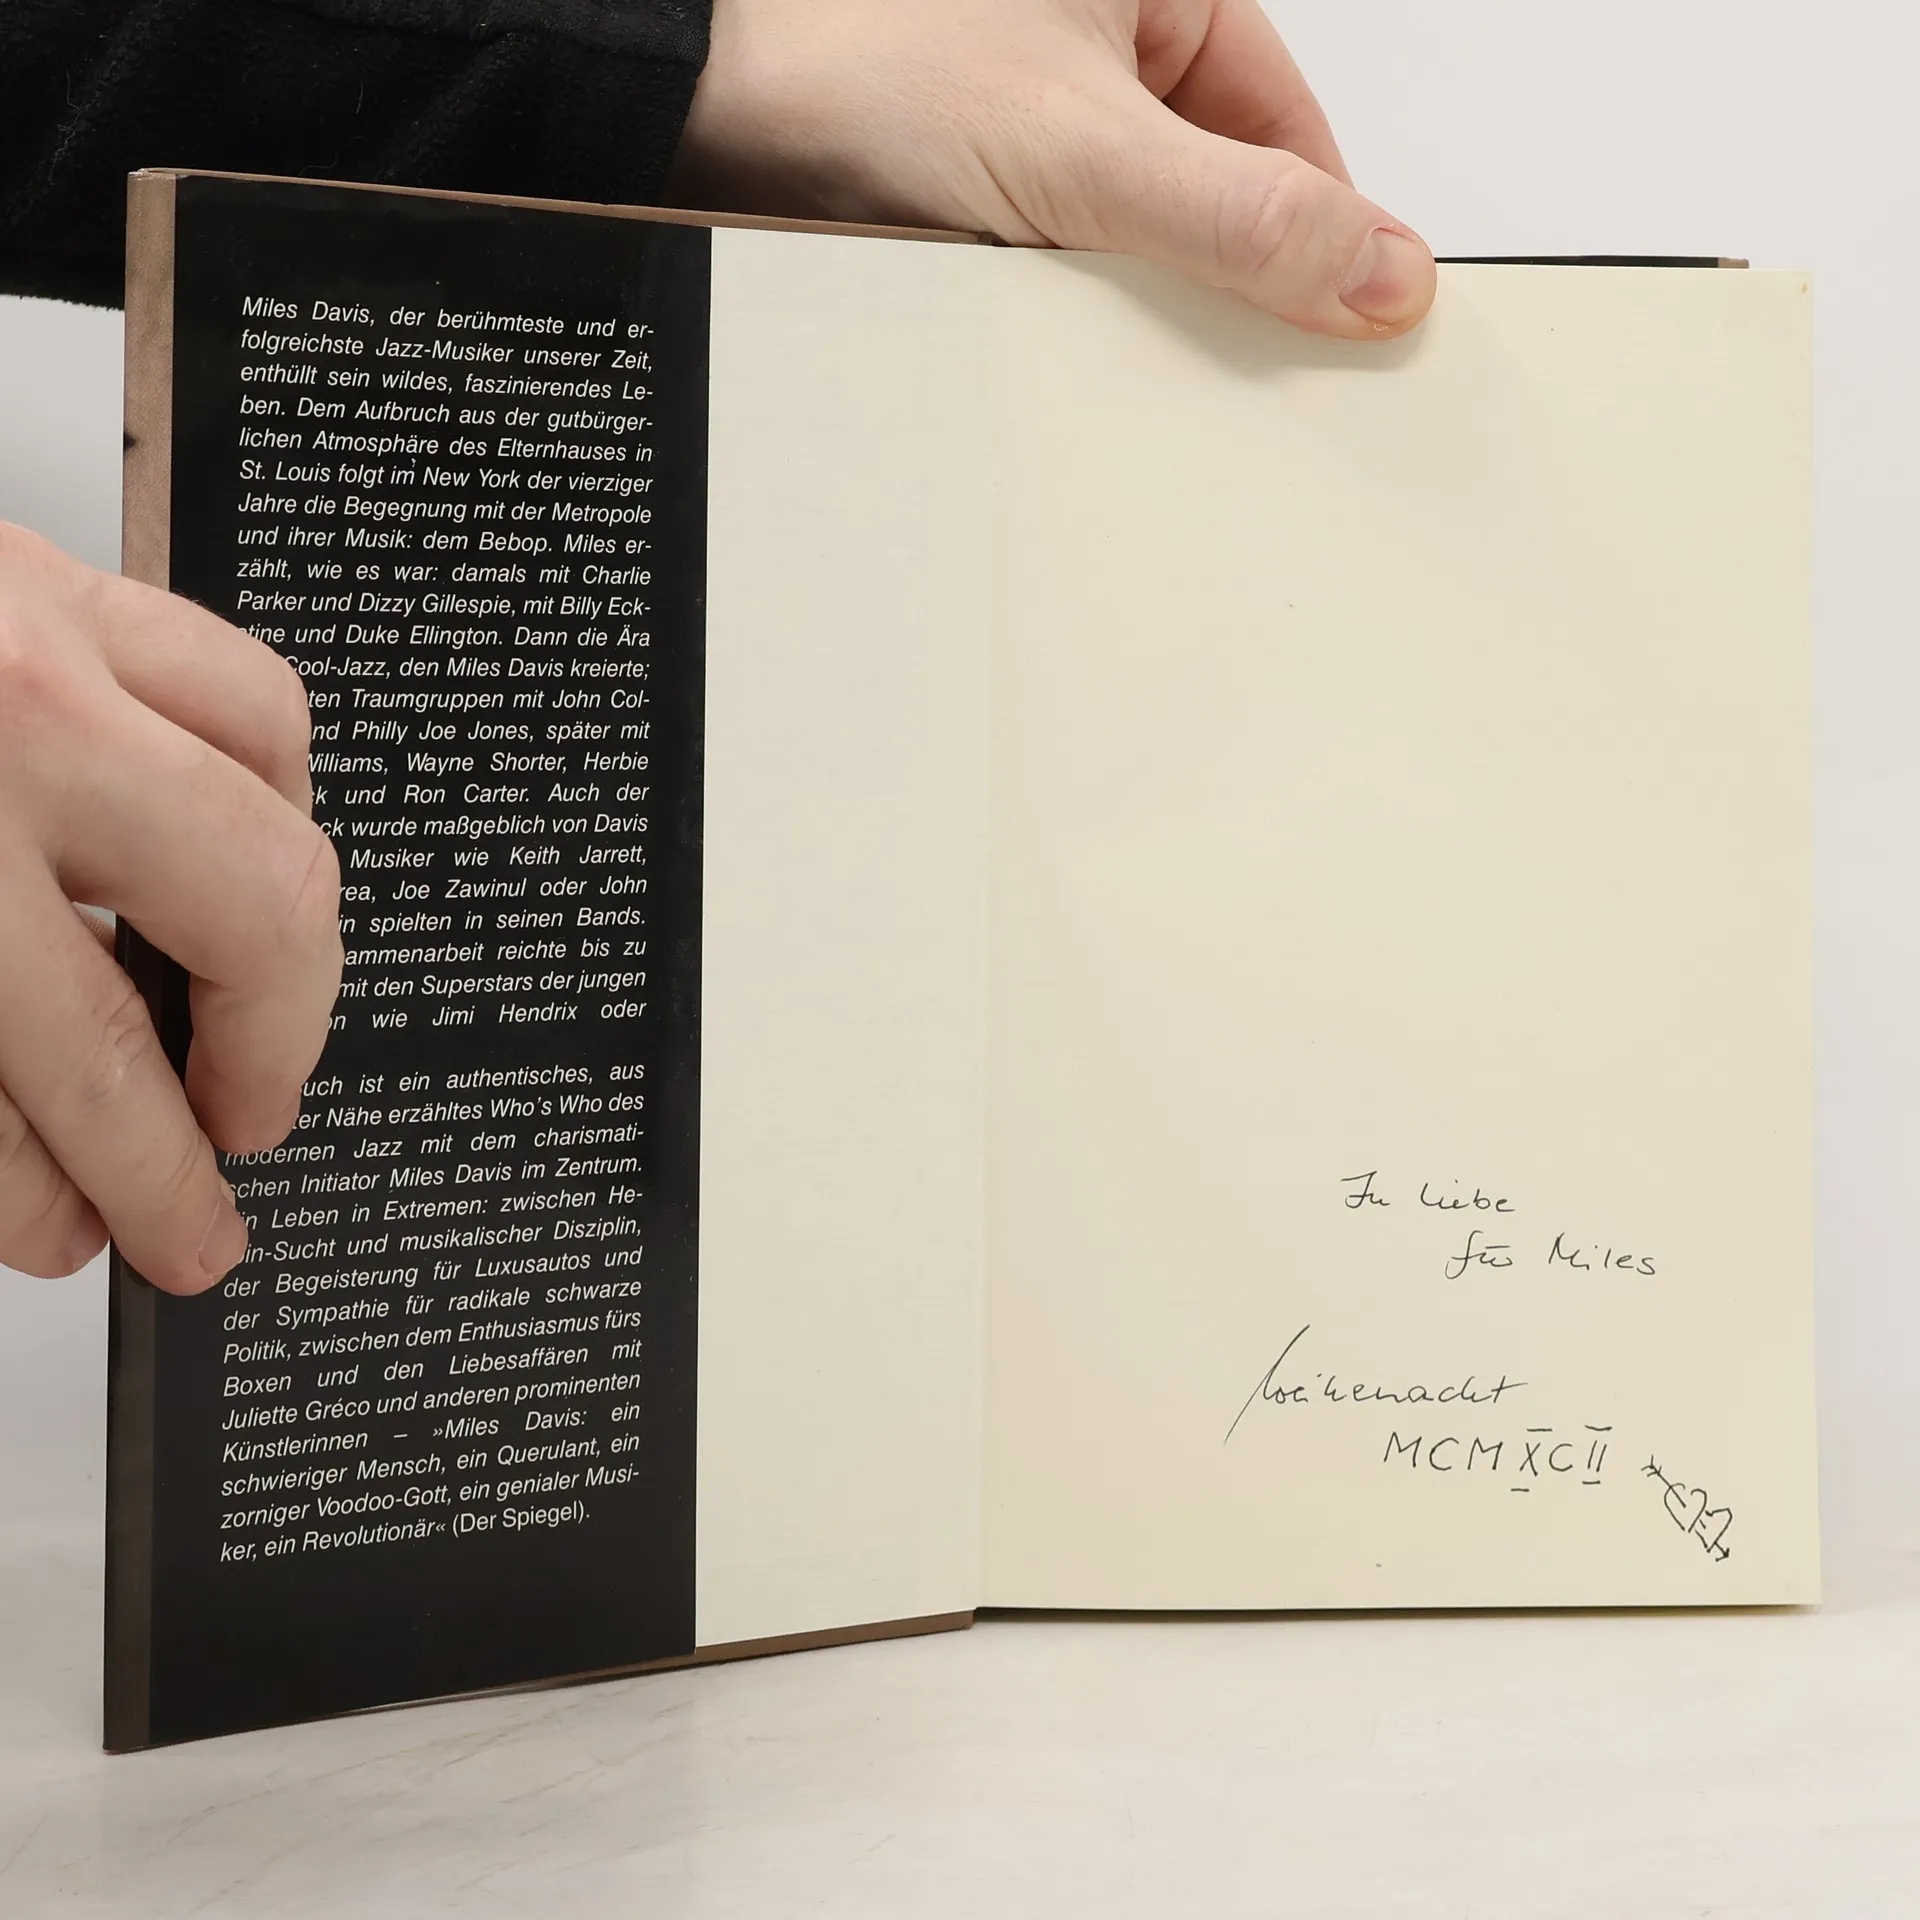 Miles Davis, der berühmteste und er-
folgreichste Jazz-Musiker unserer Zeit,
enthüllt sein wildes, faszinierendes Le-
ben. Dem Aufbruch aus der gutbürger-
lichen Atmosphäre des Elternhauses in
St. Louis folgt im New York der vierziger
Jahre die Begegnung mit der Metropole
und ihrer Musik: dem Bebop. Miles er-
zählt, wie es war: damals mit Charlie
Parker und Dizzy Gillespie, mit Billy Eck-
stine und Duke Ellington. Dann die Ära
Cool-Jazz, den Miles Davis kreierte;
Traumgruppen mit John Col-
Philly Joe Jones, später mit
Williams, Wayne Shorter, Herbie
und Ron Carter. Auch der
wurde maßgeblich von Davis
Musiker wie Keith Jarrett,
Joe Zawinul oder John
spielten in seinen Bands.
reichte bis zu
mit den Superstars der jungen
wie Jimi Hendrix oder
ist ein authentisches, aus
Nähe erzähltes Who's Who des
modernen Jazz mit dem charismati-
schen Initiator Miles Davis im Zentrum.
Leben in Extremen: zwischen He-
und musikalischer Disziplin,
der Begeisterung für Luxusautos und
der Sympathie für radikale schwarze
Politik, zwischen dem Enthusiasmus fürs
Boxen und den Liebesaffären mit
Juliette Gréco und anderen prominenten
Künstlerinnen – »Miles Davis: ein
schwieriger Mensch, ein Querulant, ein
zorniger Voodoo-Gott, ein genialer Musi-
ker, ein Revolutionär« (Der Spiegel).
In Liebe
für Miles
Weihenacht
MCMXCII